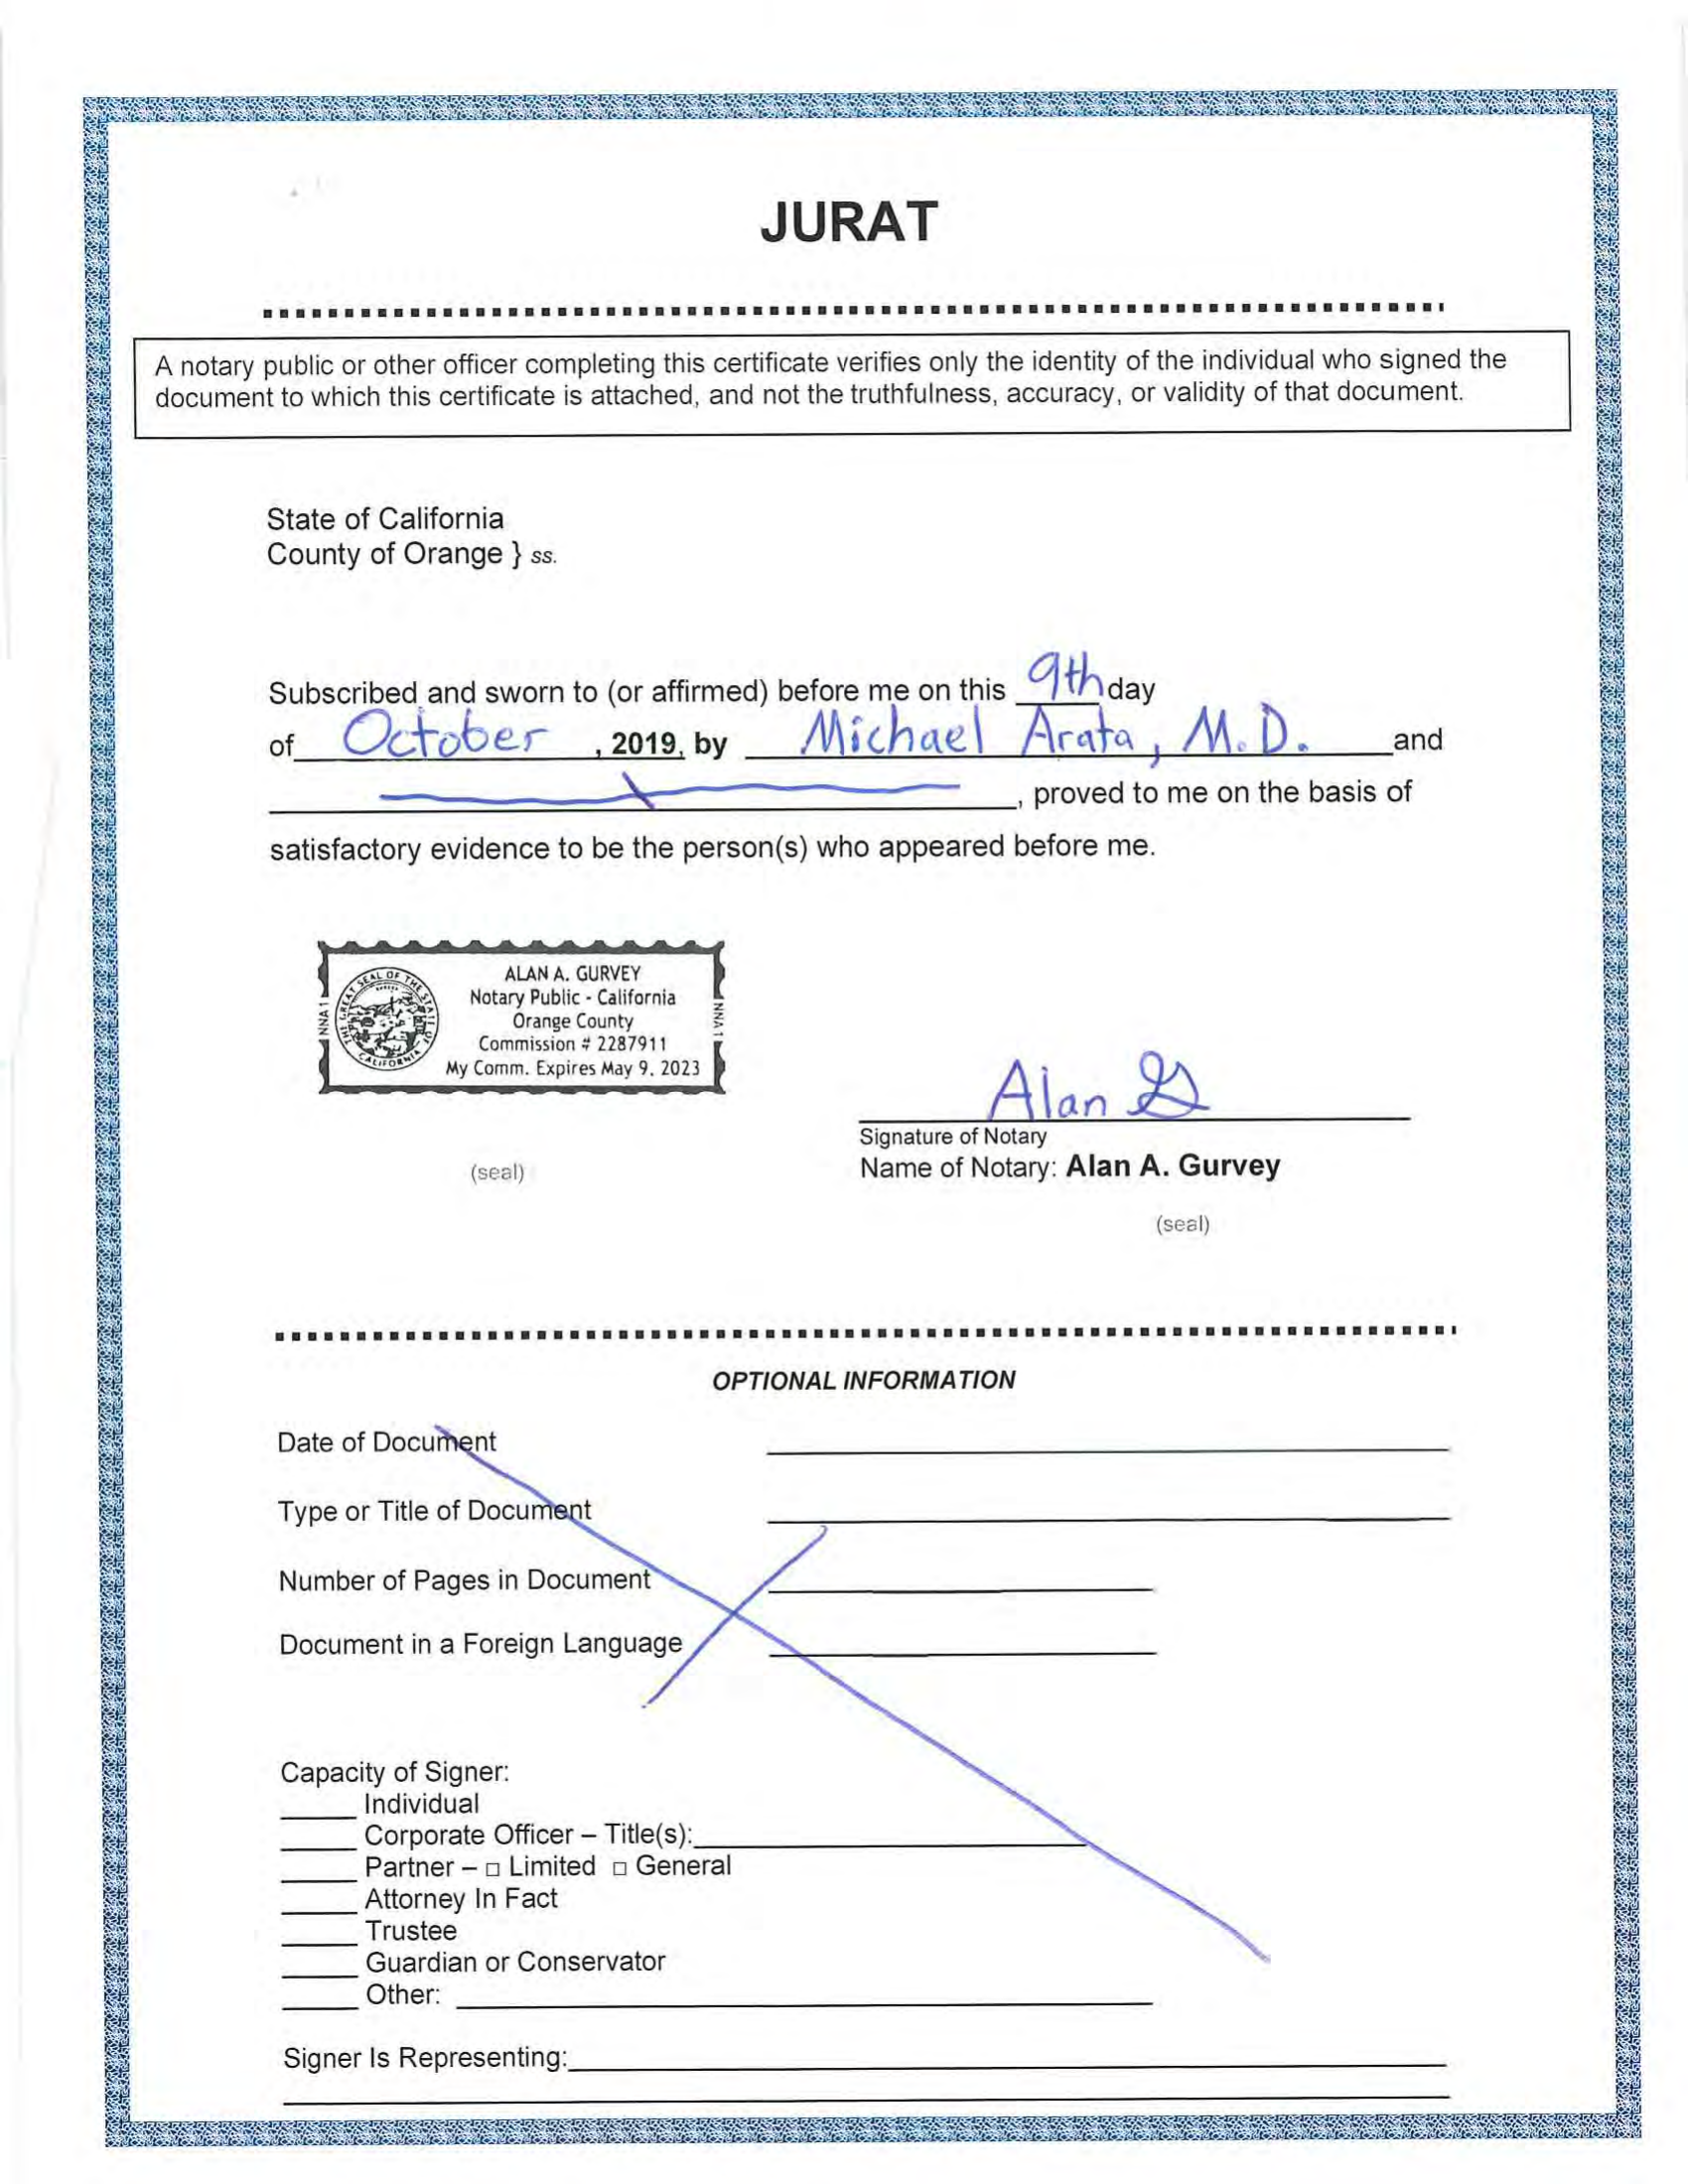 JURAT
A notary public or other officer completing this certificate verifies only the identity of the individual who signed the
document to which this certificate is attached, and not the truthfulness, accuracy, or validity of that document.
State of California
County of Orange } ss.
Subscribed and sworn to (or affirmed) before me on this 9th day
of October , 2019, by Michael Arata, M.D. and
, proved to me on the basis of
satisfactory evidence to be the person(s) who appeared before me.
ALAN A. GURVEY
Notary Public - California
Orange County
Commission # 2287911
My Comm. Expires May 9, 2023
THE GREAT SEAL OF THE STATE OF CALIFORNIA
NNA1
NNA1
Alan
Signature of Notary
Name of Notary: Alan A. Gurvey
(seal)
(seal)
OPTIONAL INFORMATION
Date of Document
Type or Title of Document
Number of Pages in Document
Document in a Foreign Language
Capacity of Signer:
Individual
Corporate Officer – Title(s):
Partner – □ Limited □ General
Attorney In Fact
Trustee
Guardian or Conservator
Other:
Signer Is Representing: